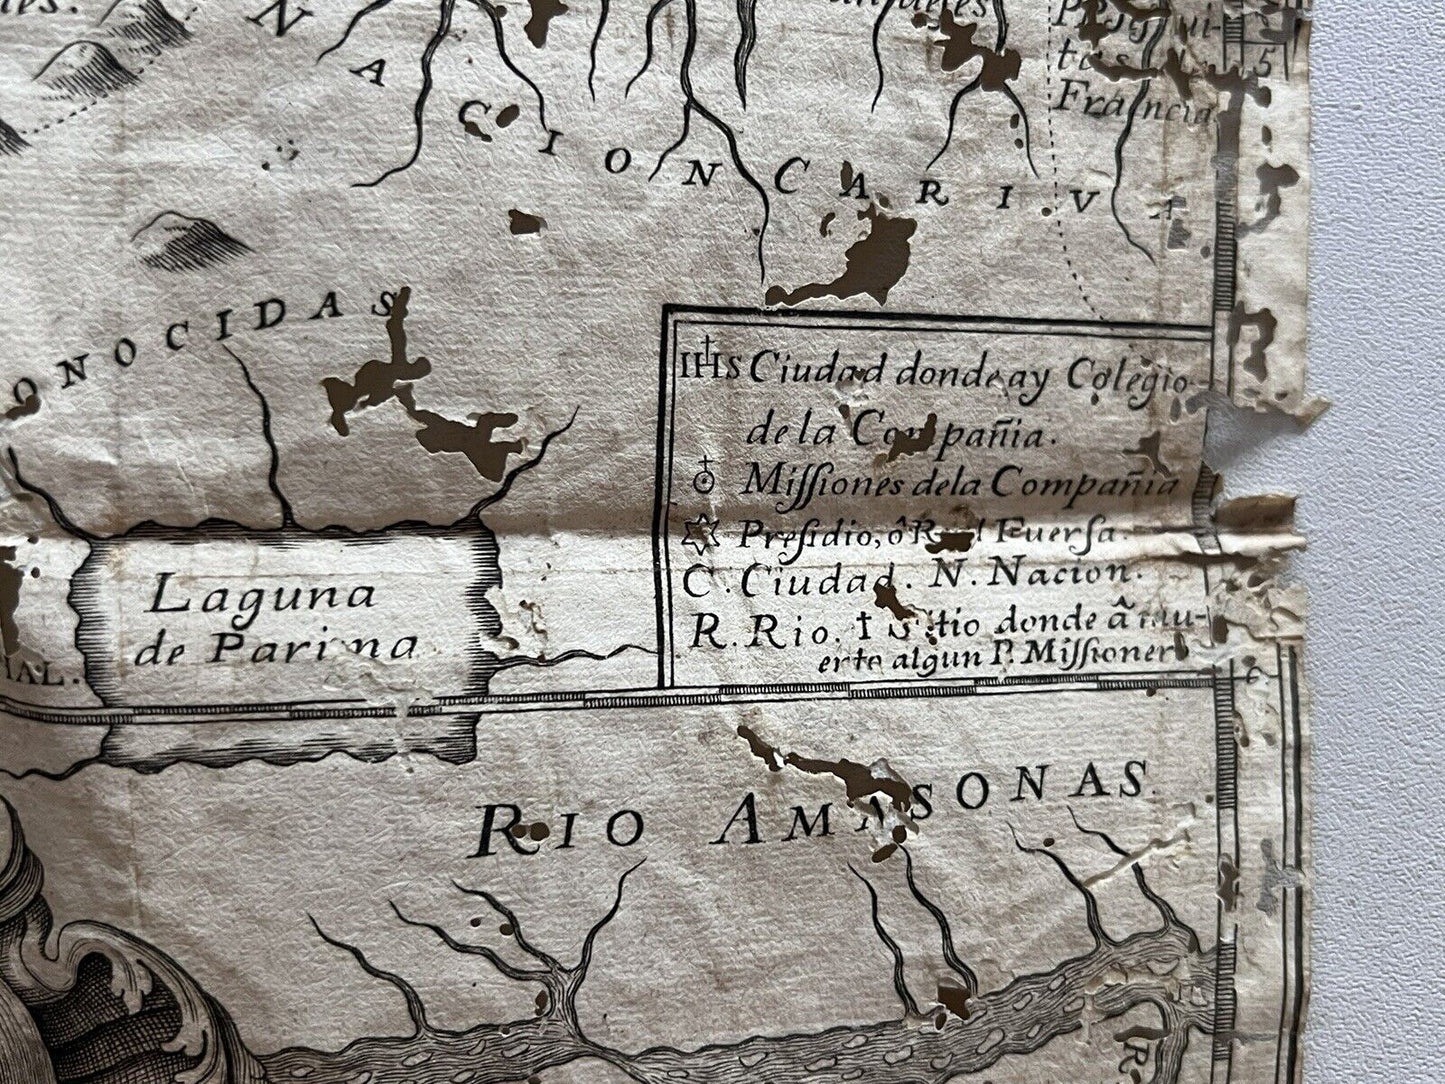 Francia
NACION CARIVA
ONOCIDAS
IHS Ciudad donde ay Colegio
de la Compañia.
Miſſiones dela Compañia
Preſidio, ô Real Fuerſa.
C. Ciudad. N. Nacion.
R. Rio. † Sitio donde â mu-
erto algun P. Miſſionero
Laguna
de Parima
IAL.
RIO AMASONAS.
R
5
6